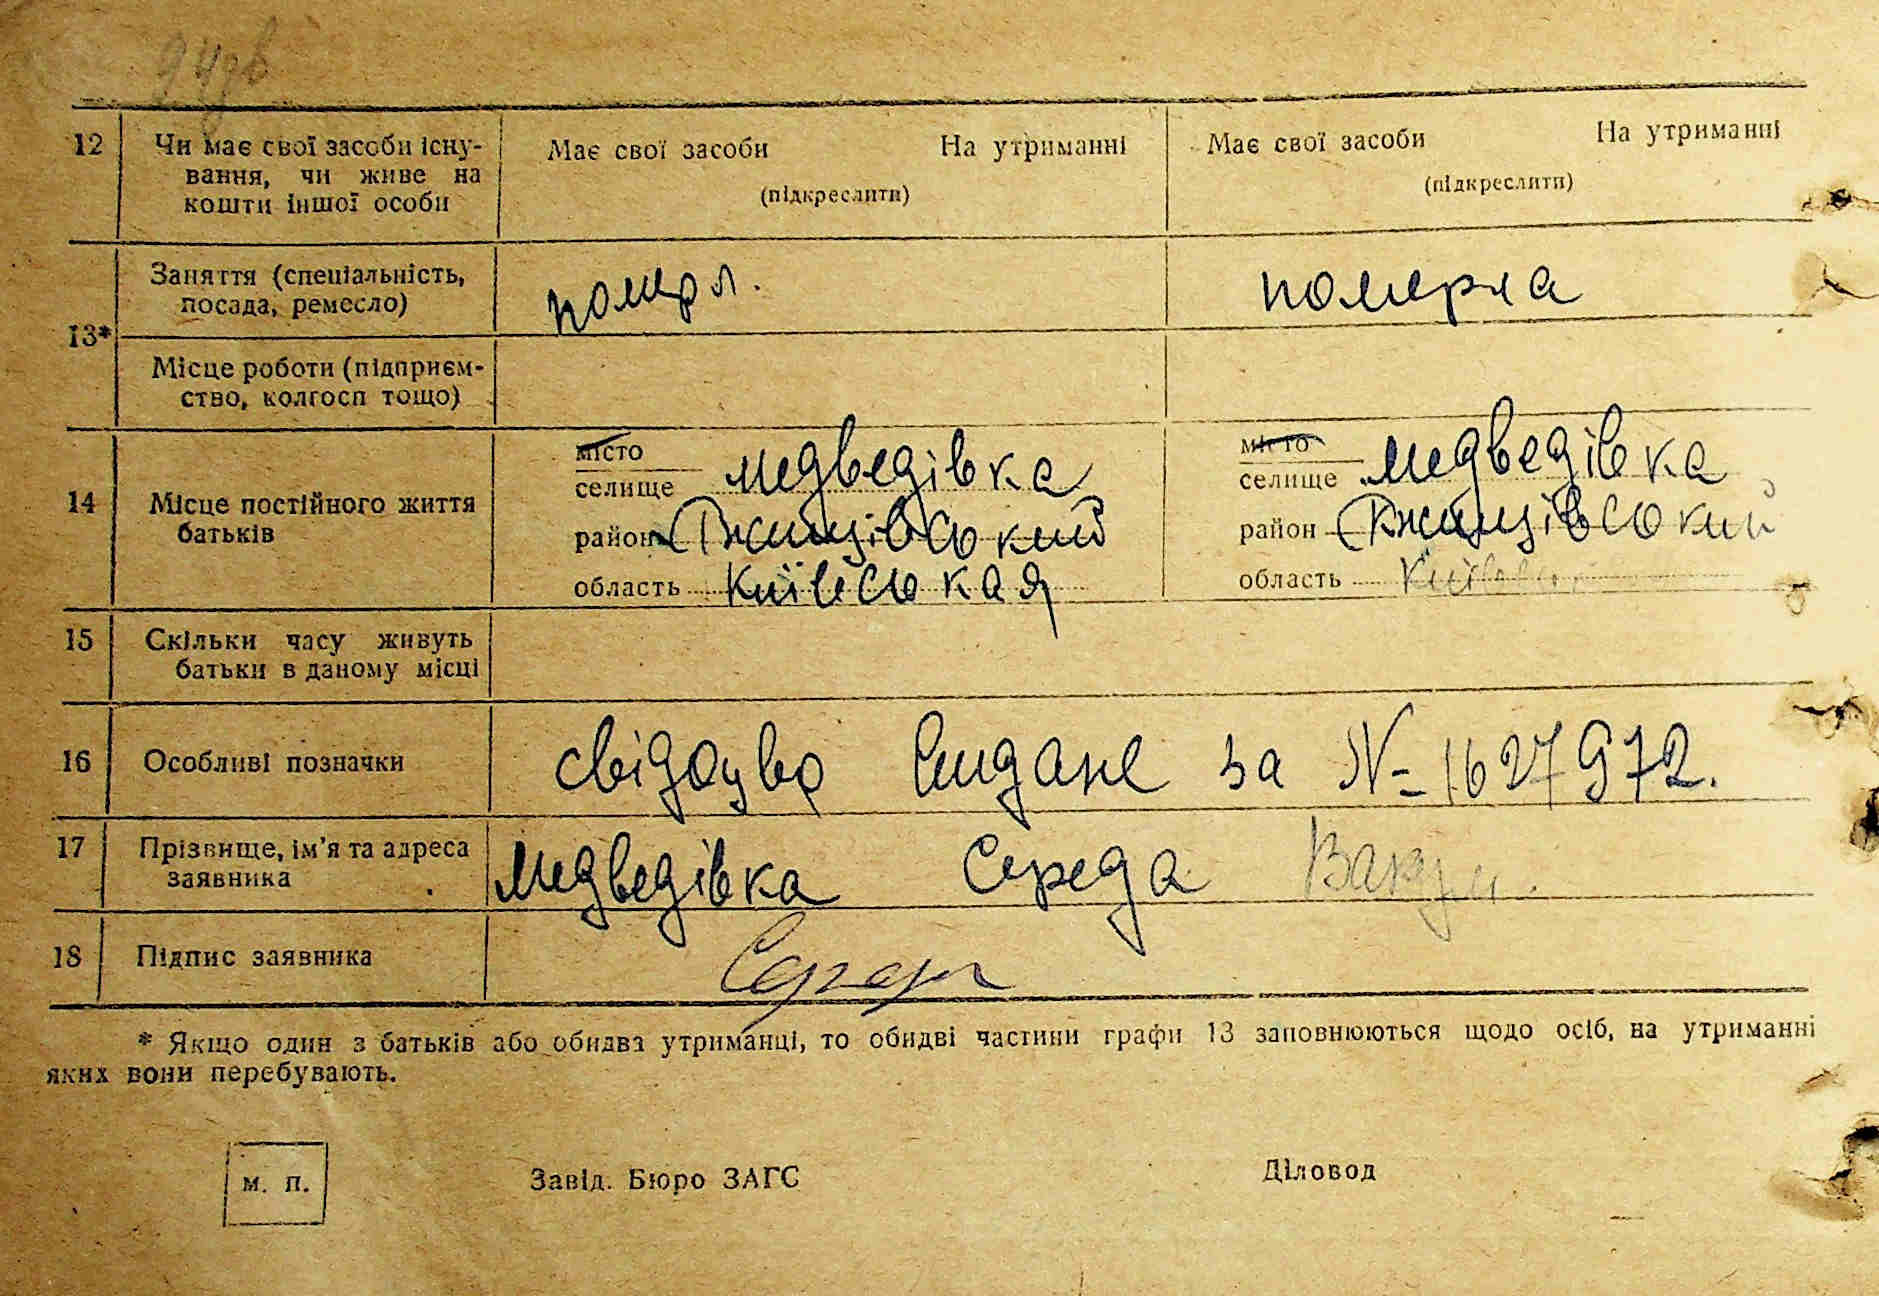 12 Чи має свої засоби існу- Має свої засоби На утриманні Має свої засоби На утриманні
вання, чи живе на (підкреслити) (підкреслити)
кошти іншої особи
13* Заняття (спеціальність, помер померла
посада, ремесло)
Місце роботи (підприєм-
ство, колгосп тощо)
14 Місце постійного життя батьків
місто
селище медведівка
район Ржищівський
область Київськая
місто
селище медведівка
район Ржищівський
область
15 Скільки часу живуть
батьки в даному місці
16 Особливі позначки свідоцво видане за № 1627972.
17 Прізвище, ім'я та адреса медведівка Середа
заявника
18 Підпис заявника
* Якщо один з батьків або обидва утриманці, то обидві частини графи 13 заповнюються щодо осіб, на утриманні
яких вони перебувають.
м. п. Завід. Бюро ЗАГС Діловод